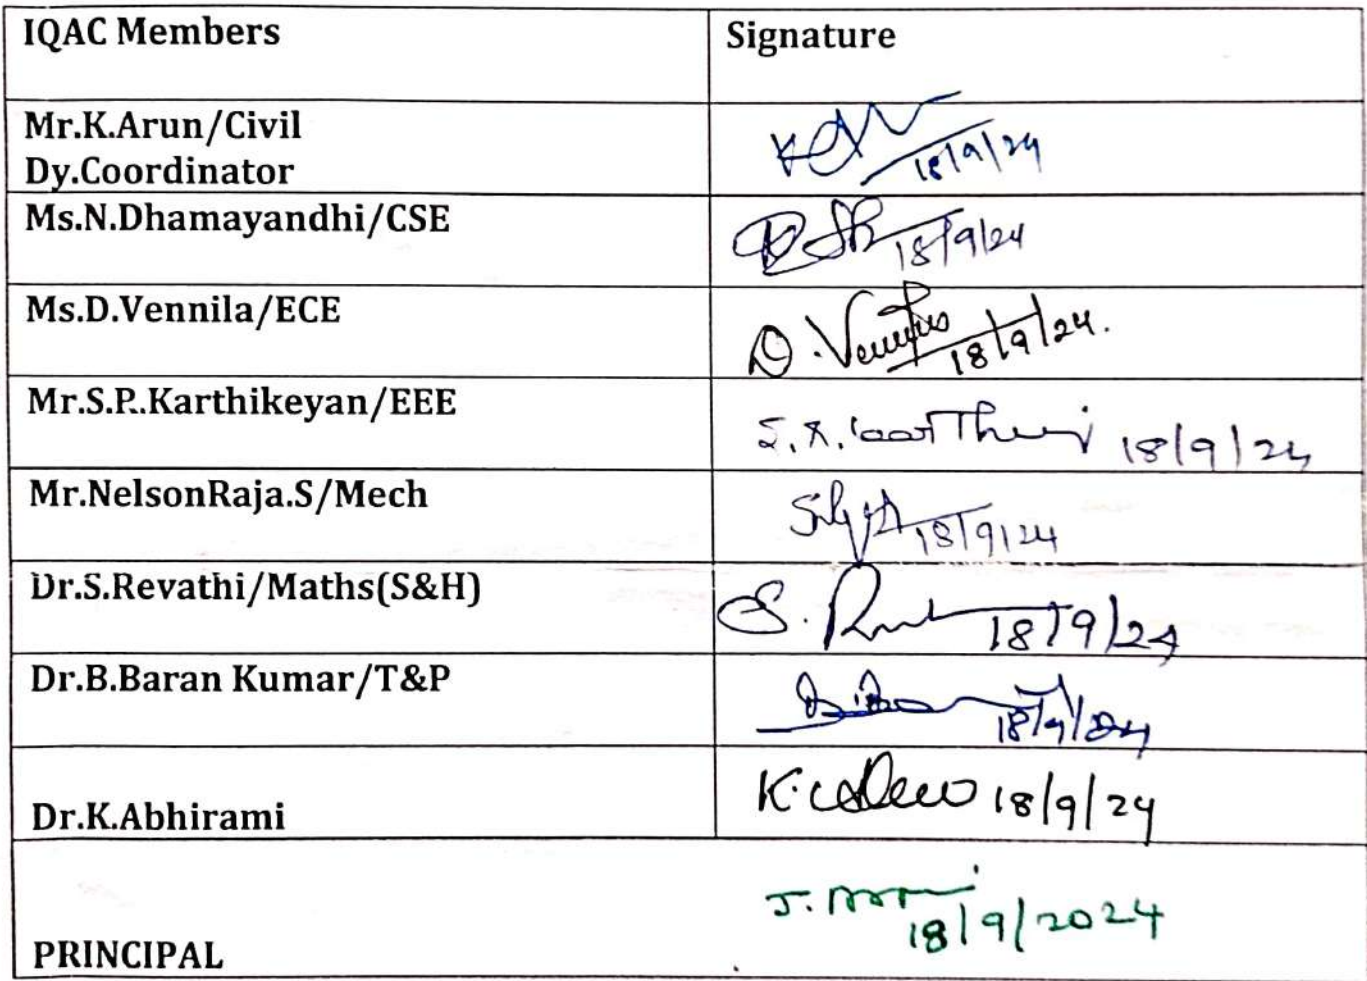 IQAC Members Signature
Mr.K.Arun/Civil
Dy.Coordinator
18/9/24
Ms.N.Dhamayandhi/CSE
18/9/24
Ms.D.Vennila/ECE
D. 18/9/24.
Mr.S.P..Karthikeyan/EEE
18/9/24
Mr.NelsonRaja.S/Mech
18/9/24
Dr.S.Revathi/Maths(S&H)
S. 18/9/24
Dr.B.Baran Kumar/T&P
18/9/24
Dr.K.Abhirami
K. 18/9/24
J.
18/9/2024
PRINCIPAL